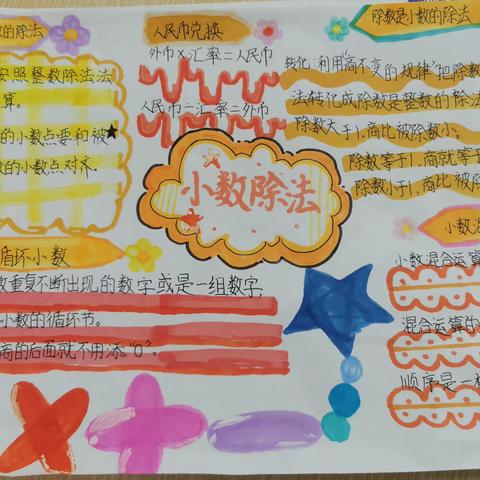 的除法
安照整数除法法
算。
的小数点要和被
数的小数点对齐.
人民币兑换
外币×汇率=人民币
人民币÷汇率=外币
除数是小数的除法
转化:利用"商不变的规律"把除数
法转化成除数是整数的除法
除数大于1,商比被除数小。
除数等于1,商就等于
除数小于1,商比被除
小数除法
循环小数
数重复不断出现的数字或是一组数字,
小数的循环节。
商的后面就不用添"0"。
小数混
小数混合运算
混合运算的
顺序是一样